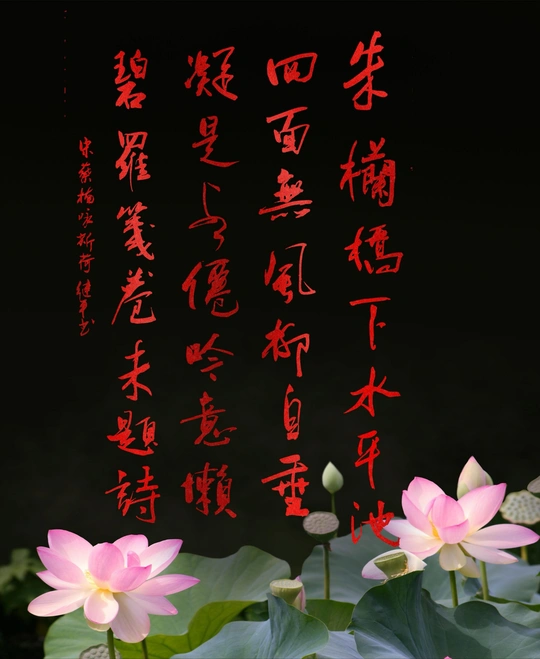 朱欄橋下水平池
四面無風柳自垂
凝是僊吟意懶
碧羅箋卷未題詩
宋蔡楠咏新荷 平书